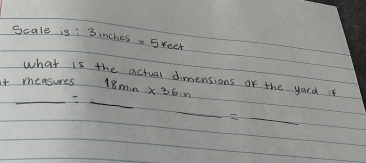 Scale is: 3 inches = 5 feet
what is the actual dimensions of the yard if
it measures 18 min x 36 in
____ = ____ ____ = ____